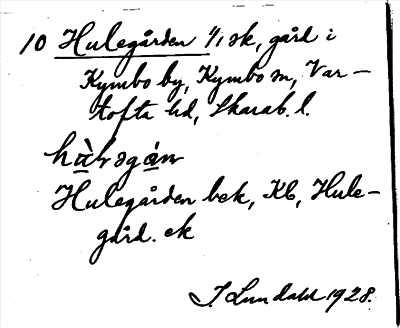 10 Hulegården 1/1 sk, gård i
Kymbo by, Kymbo sn, Var-
tofta hd, Skarab. l.
Hulegården bek, Kb, Hule-
gård. ek
J. Lundahl 1928.